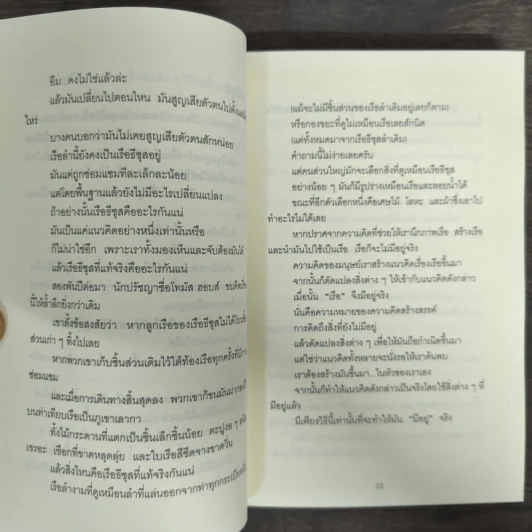 อืม...คงไม่ใช่แล้วล่ะ
แล้วมันเปลี่ยนไปตอนไหน มันสูญเสียตัวตนไปตั้งแต่เมื่อ
ไหร่
บางคนบอกว่ามันไม่เคยสูญเสียตัวตนสักหน่อย
เรือลำนี้ยังคงเป็นเรือธีซุสอยู่
มันแค่ถูกซ่อมแซมทีละเล็กละน้อย
แต่โดยพื้นฐานแล้วยังไม่มีอะไรเปลี่ยนแปลง
ถ้าอย่างนั้นเรือธีซุสคืออะไรกันแน่
มันเป็นแค่แนวคิดอย่างหนึ่งเท่านั้นหรือ
ก็ไม่น่าใช่อีก เพราะเราทั้งมองเห็นและจับต้องมันได้
แล้วเรือธีซุสที่แท้จริงคืออะไรกันแน่
สองพันปีต่อมา นักปรัชญาชื่อโทมัส ฮอบส์ ขบคิดเรื่อง
นี้ให้ล้ำลึกยิ่งกว่าเดิม
เขาตั้งข้อสงสัยว่า หากลูกเรือของเรือธีซุสไม่ได้โยน
ส่วนเก่า ๆ ทิ้งไปเลย
หากพวกเขาเก็บชิ้นส่วนเดิมไว้ใต้ท้องเรือทุกครั้งที่มีการ
ซ่อมแซม
และเมื่อการเดินทางสิ้นสุดลง พวกเขาก็ขนมันมากอง
บนท่าเทียบเรือเป็นภูเขาเลากา
ทั้งไม้กระดานที่แตกเป็นชิ้นเล็กชิ้นน้อย ตะปูงอ ๆ
เขรอะ เชือกที่ขาดหลุดลุ่ย และใบเรือสีซีดจางขาดวิ่น
แล้วสิ่งไหนคือเรือธีซุสที่แท้จริงกันแน่
เรือลำงามที่ดูเหมือนลำที่แล่นออกจากท่าทุกกระเบียด
(แม้จะไม่มีชิ้นส่วนของเรือลำเดิมอยู่เลยก็ตาม)
หรือกองขยะที่ดูไม่เหมือนเรือเลยสักนิด
(แต่ทั้งหมดมาจากเรือธีซุสลำเดิม)
คำถามนี้ไม่ง่ายเลยครับ
แต่คนส่วนใหญ่มักจะเลือกสิ่งที่ดูเหมือนเรือธีซุส
อย่างน้อย ๆ มันก็มีรูปร่างเหมือนเรือและลอยน้ำได้
ขณะที่อีกตัวเลือกหนึ่งคือเศษไม้ โลหะ และผ้าซึ่งเอาไป
ทำอะไรไม่ได้เลย
หากปราศจากความคิดที่ช่วยให้เรานึกภาพเรือ สร้างเรือ
และนำมันไปใช้เป็นเรือ เรือก็จะไม่มีอยู่จริง
ความคิดของมนุษย์เราสร้างแนวคิดเรื่องเรือขึ้นมา
จากนั้นก็ดัดแปลงสิ่งต่าง ๆ ให้เข้ากับแนวคิดดังกล่าว
เมื่อนั้น “เรือ” จึงมีอยู่จริง
นั่นคือความหมายของความคิดสร้างสรรค์
การคิดถึงสิ่งที่ยังไม่มีอยู่
แล้วดัดแปลงสิ่งต่าง ๆ เพื่อให้มันถือกำเนิดขึ้นมา
แต่ใช่ว่าแนวคิดทั้งหลายจะนั่งรอให้เราค้นพบ
เราต้องสร้างมันขึ้นมา...ในหัวของเราเอง
จากนั้นก็ทำให้แนวคิดดังกล่าวเป็นจริงโดยใช้สิ่งต่าง ๆ ที่
มีอยู่แล้ว
มีเพียงวิธีนี้เท่านั้นที่จะทำให้มัน “มีอยู่” จริง